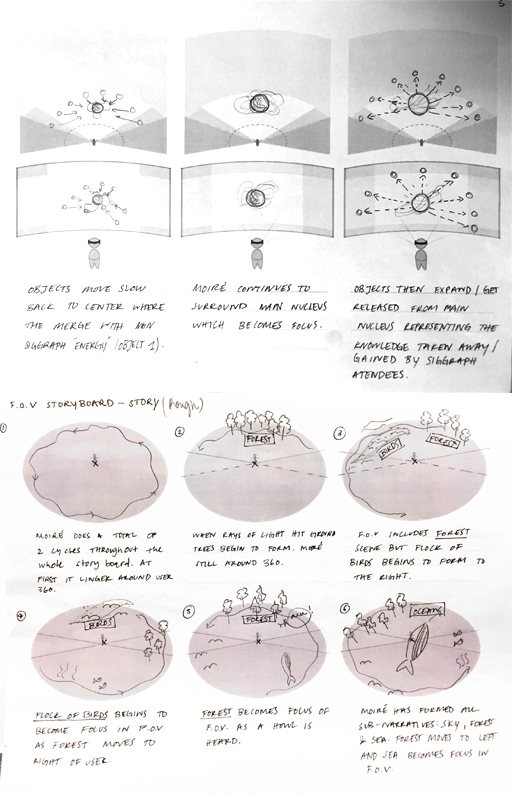 5
OBJECTS MOVE SLOW
BACK TO CENTER WHERE
THE MERGE WITH MAIN
SIGGRAPH "ENERGY" (OBJECT 1).
MOIRÉ CONTINUES TO
SURROUND MAIN NUCLEUS
WHICH BECOMES FOCUS.
OBJECTS THEN EXPAND / GET
RELEASED FROM MAIN
NUCLEUS REPRESENTING THE
KNOWLEDGE TAKEN AWAY /
GAINED BY SIGGRAPH
ATENDEES.
F.O.V STORYBOARD - STORY (Rough)
1
2
FOREST
3
BIRDS
FOREST
MOIRÉ DOES A TOTAL OF
2 CYCLES THROUGHOUT THE
WHOLE STORY BOARD. AT
FIRST IT LINGER AROUND USER
360.
WHEN RAYS OF LIGHT HIT GROUND
TREES BEGIN TO FORM. MORÉ
STILL AROUND 360.
F.O.V INCLUDES FOREST
SCENE BUT FLOCK OF
BIRDS BEGINS TO FORM TO
THE RIGHT.
4
BIRDS
5
FOREST
6
OCEANS
FLOCK OF BIRDS BEGINS TO
BECOME FOCUS IN F.O.V
AS FOREST MOVES TO
RIGHT OF USER.
FOREST BECOMES FOCUS OF
F.O.V. AS A HOWL IS
HEARD.
MOIRÉ HAS FORMED ALL
SUB-NARRATIVES: SKY, FOREST
& SEA. FOREST MOVES TO LEFT
AND SEA BECOMES FOCUS IN
F.O.V.